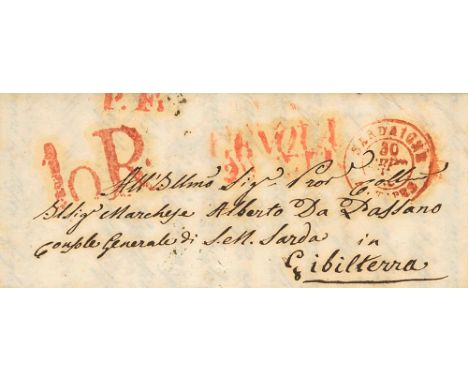 P. F.
10 R.
GENOVA
SARDAIGNE
30
All' Illmo Sigr. Pror Col
Il Sigr. Marchese Alberto Da Passano
Console Generale di S.M. Sarda in
Gibilterra